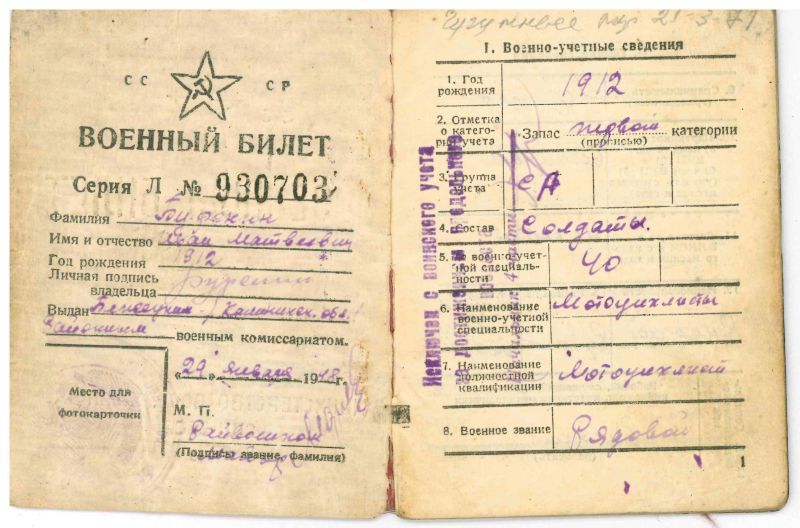 СС СР
ВОЕННЫЙ БИЛЕТ
Серия Л № 930703
Фамилия
Имя и отчество Иван Матвеевич
Год рождения 1912
Личная подпись
владельца
Выдан Бежецким Калининск. обл.
Районным
военным комиссариатом.
«29» января 1948 г.
Место для
фотокарточки
М. П.
Райвоенком
(Подпись, звание, фамилия)
21-3-71
I. Военно-учетные сведения
1. Год
рождения 1912
2. Отметка
о катего-
рии учета Запас первой категории
(прописью)
3. Группа
учета СА
4. Состав Солдаты.
5. № военно-учет-
ной специаль-
ности 40
6. Наименование
военно-учетной
специальности Мотоциклисты
7. Наименование
должностной
квалификации Мотоциклист
8. Военное звание Рядовой
Исключен с воинского учета
по достижении предельного
возраста
1